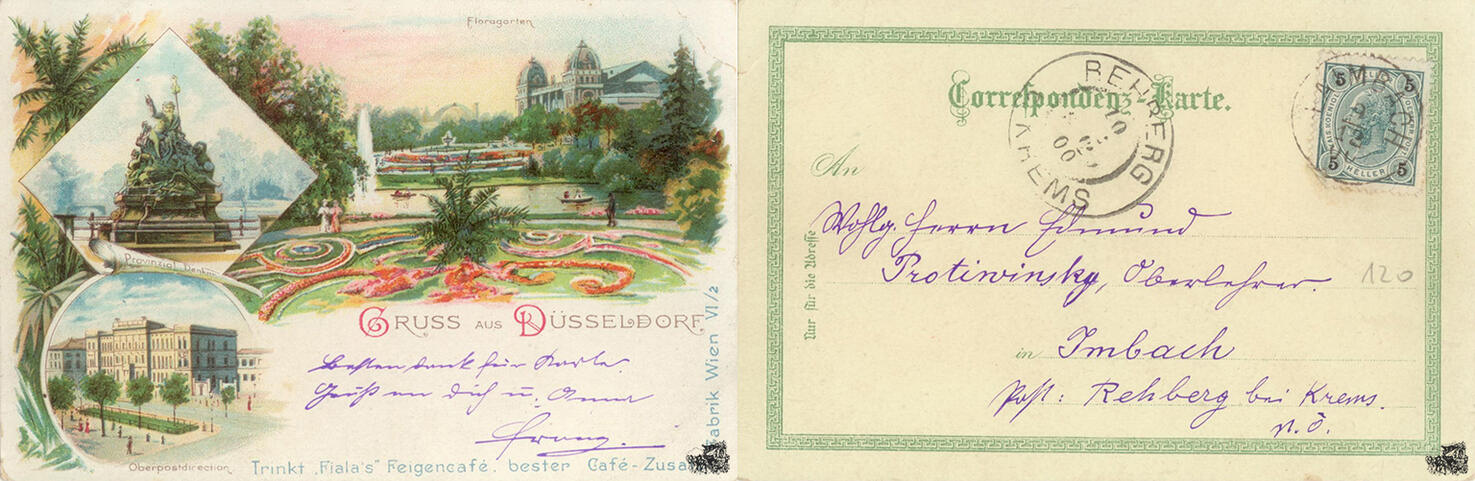 Floragarten
Provinzial Denkm
GRUSS AUS DÜSSELDORF
Besten dank für Karte.
Grüß an dich u. Anna
Franz.
Oberpostdirection
Trinkt „Fiala's" Feigencafé, bester Café-Zusa
fabrik Wien VI/2
Correspondenz-Karte.
REHBERG
KREMS
10
00
5 5
5 HELLER 5
An
Wohlg. Herrn Edmund
Protiwinsky, Oberlehrer.
in Imbach
Post: Rehberg bei Krems.
N.Ö.
Nur für die Adresse
120